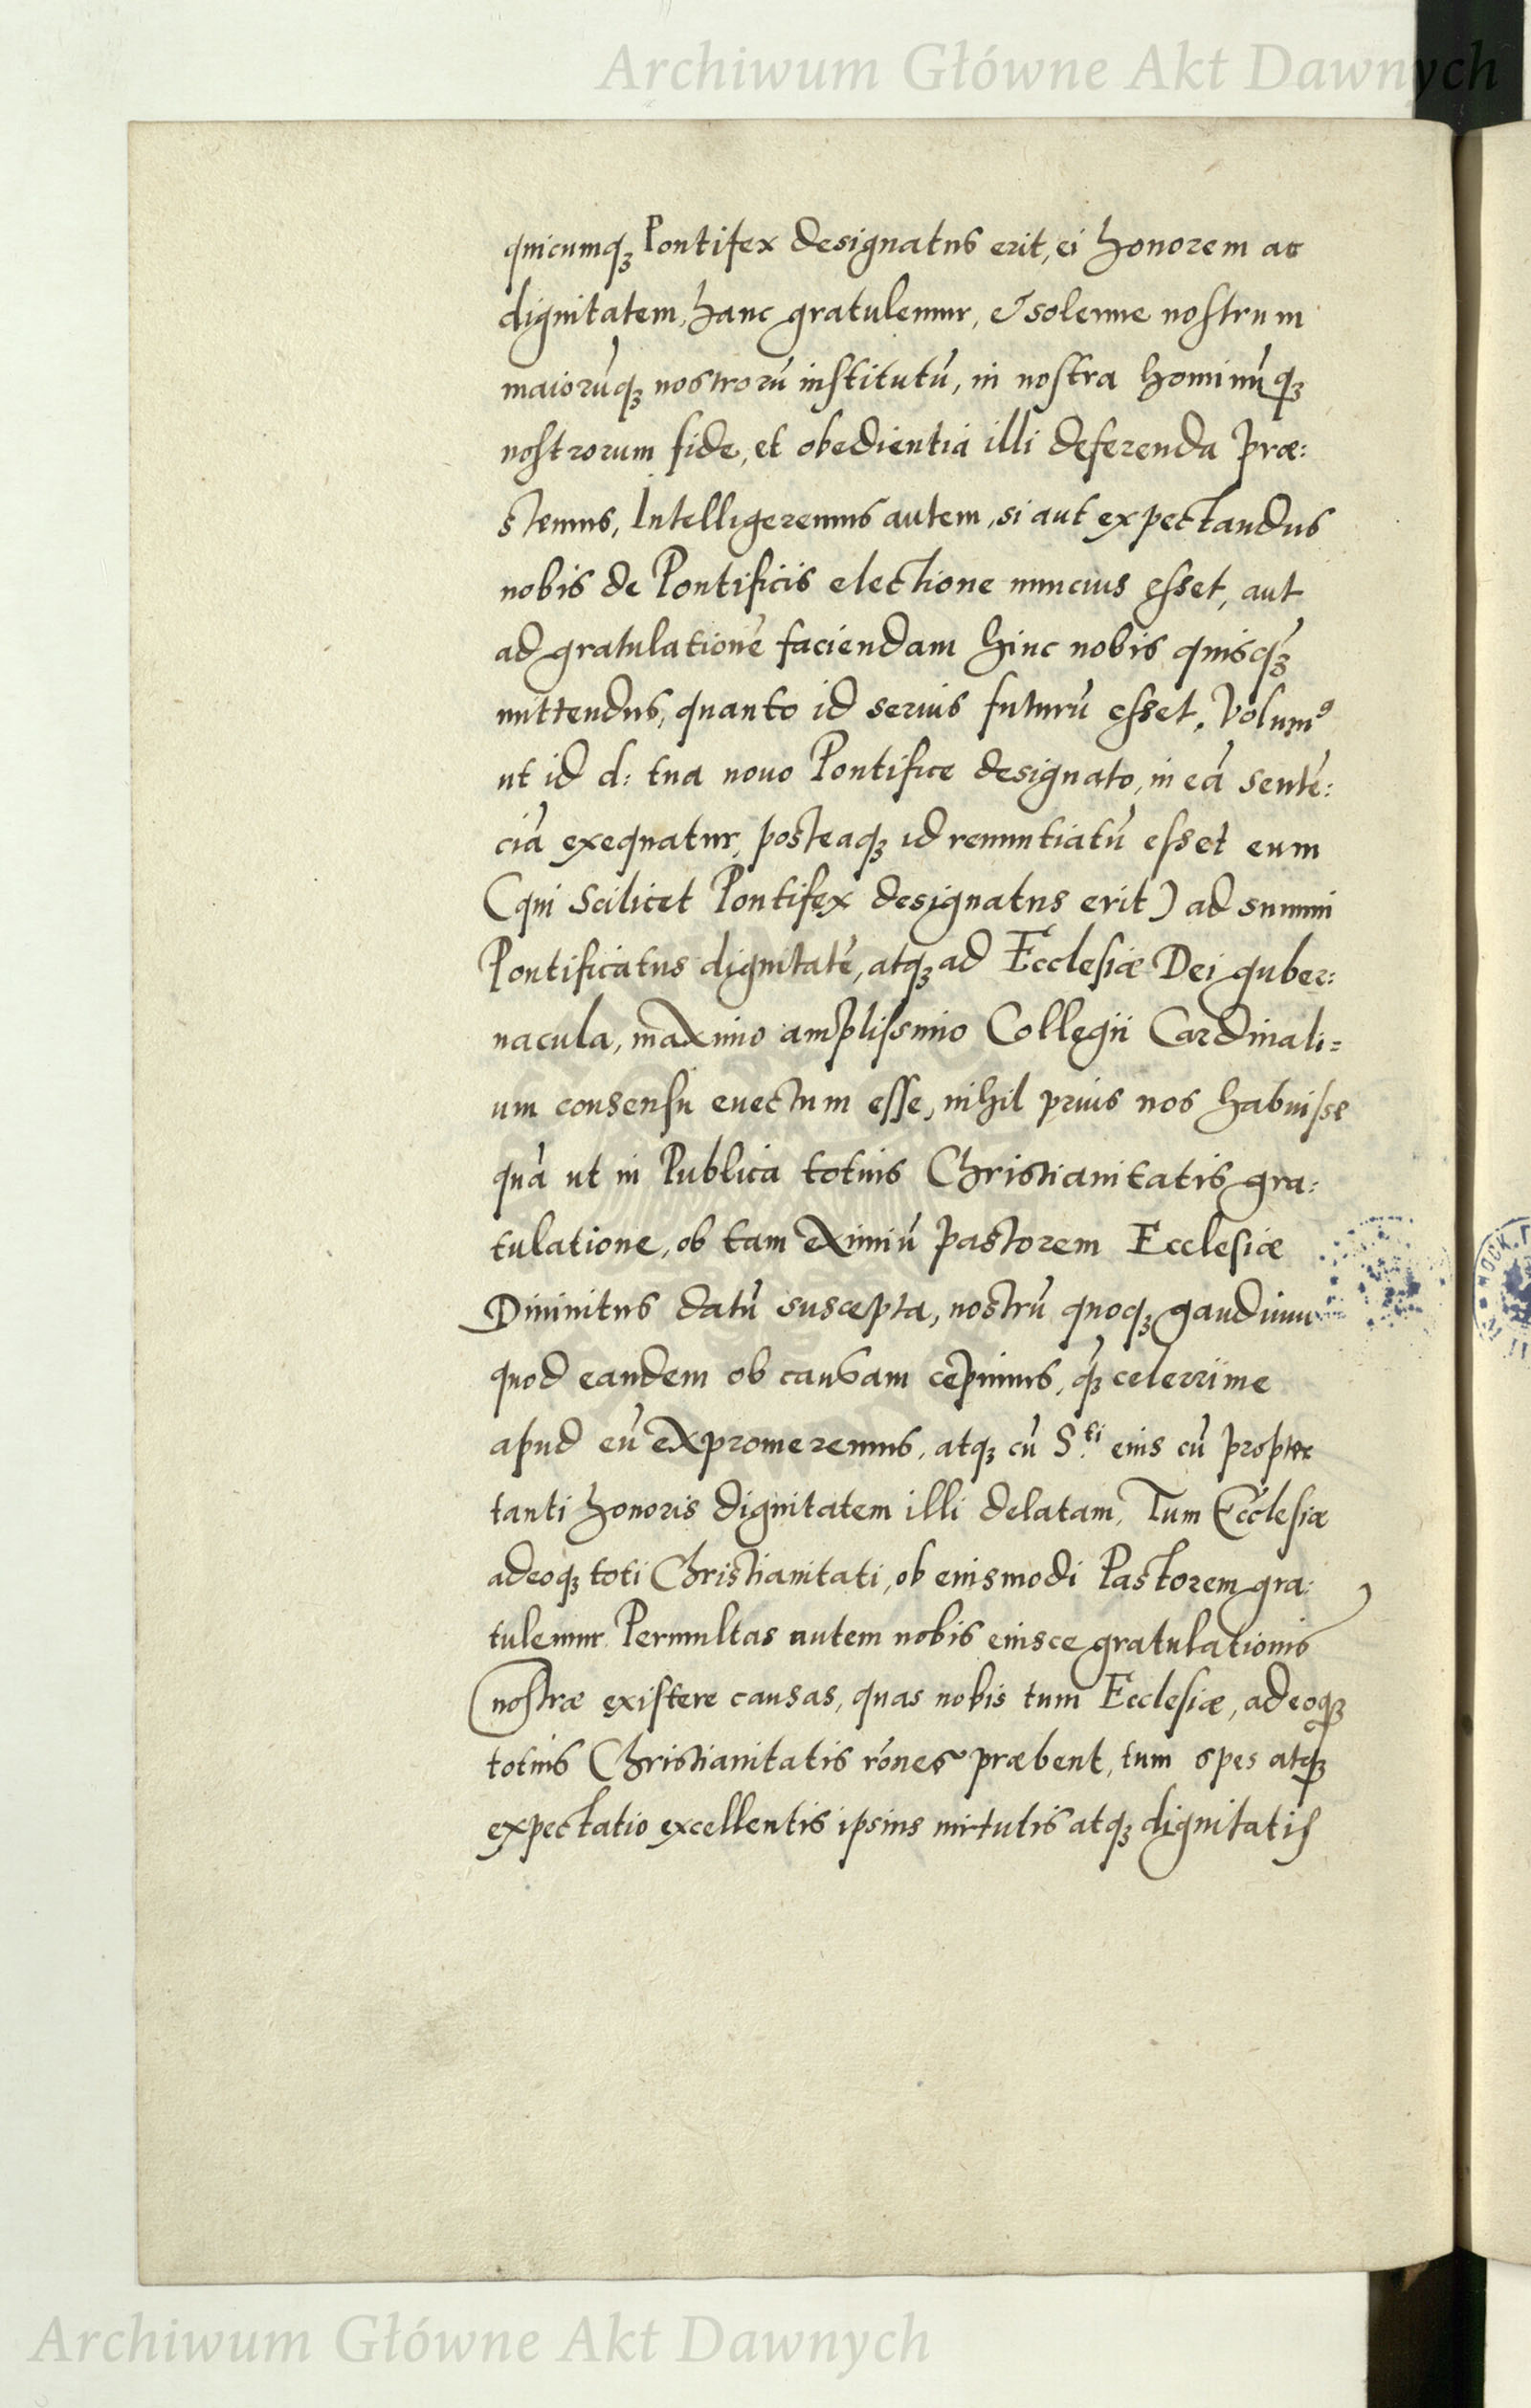 Archiwum Główne Akt Dawnych
quicumqꝫ Pontifex designatus erit, ei honorem ac
dignitatem, hanc gratulemur, et solenne nostrum
maiorūqꝫ nostrorū institutū, in nostra hominūqꝫ
nostrorum fide, et obedientia illi deferenda præ:
stemus, Intelligeremus autem, si aut expectandus
nobis de Pontificis electione nuncius esset, aut
ad gratulationē faciendam hinc nobis quisqꝫ̄
mittendus, quanto id serius futurū esset. Volumꝰ
ut id d: tua nouo Pontifice designato, in eā sentē:
ciā exequatur, posteaqꝫ id renuntiatū esset eum
(qui scilicet Pontifex designatus erit) ad summi
Pontificatus dignitatē, atqꝫ ad Ecclesiæ Dei guber:
nacula, maximo amplissimo Collegii Cardinali=
um consensu euectum esse, nihil prius nos habuisse
quā ut in Publica totius Christianitatis gra:
tulatione, ob tam eximiū pastorem Ecclesiæ
Diuinitus datū suscepta, nostrū quoqꝫ gaudium
quod eandem ob causam cepimus, qꝫ̄ celerrime
apud eū expromeremus, atqꝫ cū S.ti eius cū propter
tanti honoris dignitatem illi delatam, Tum Ecclesiæ
adeoqꝫ toti Christianitati, ob eiusmodi Pastorem gra:
tulemur Permultas autem nobis eiusce gratulationis
nostræ existere causas, quas nobis tum Ecclesiæ, adeoqꝫ
totius Christianitatis rōnes præbent, tum spes atqꝫ
expectatio excellentis ipsius uirtutis atqꝫ dignitatis
Archiwum Główne Akt Dawnych